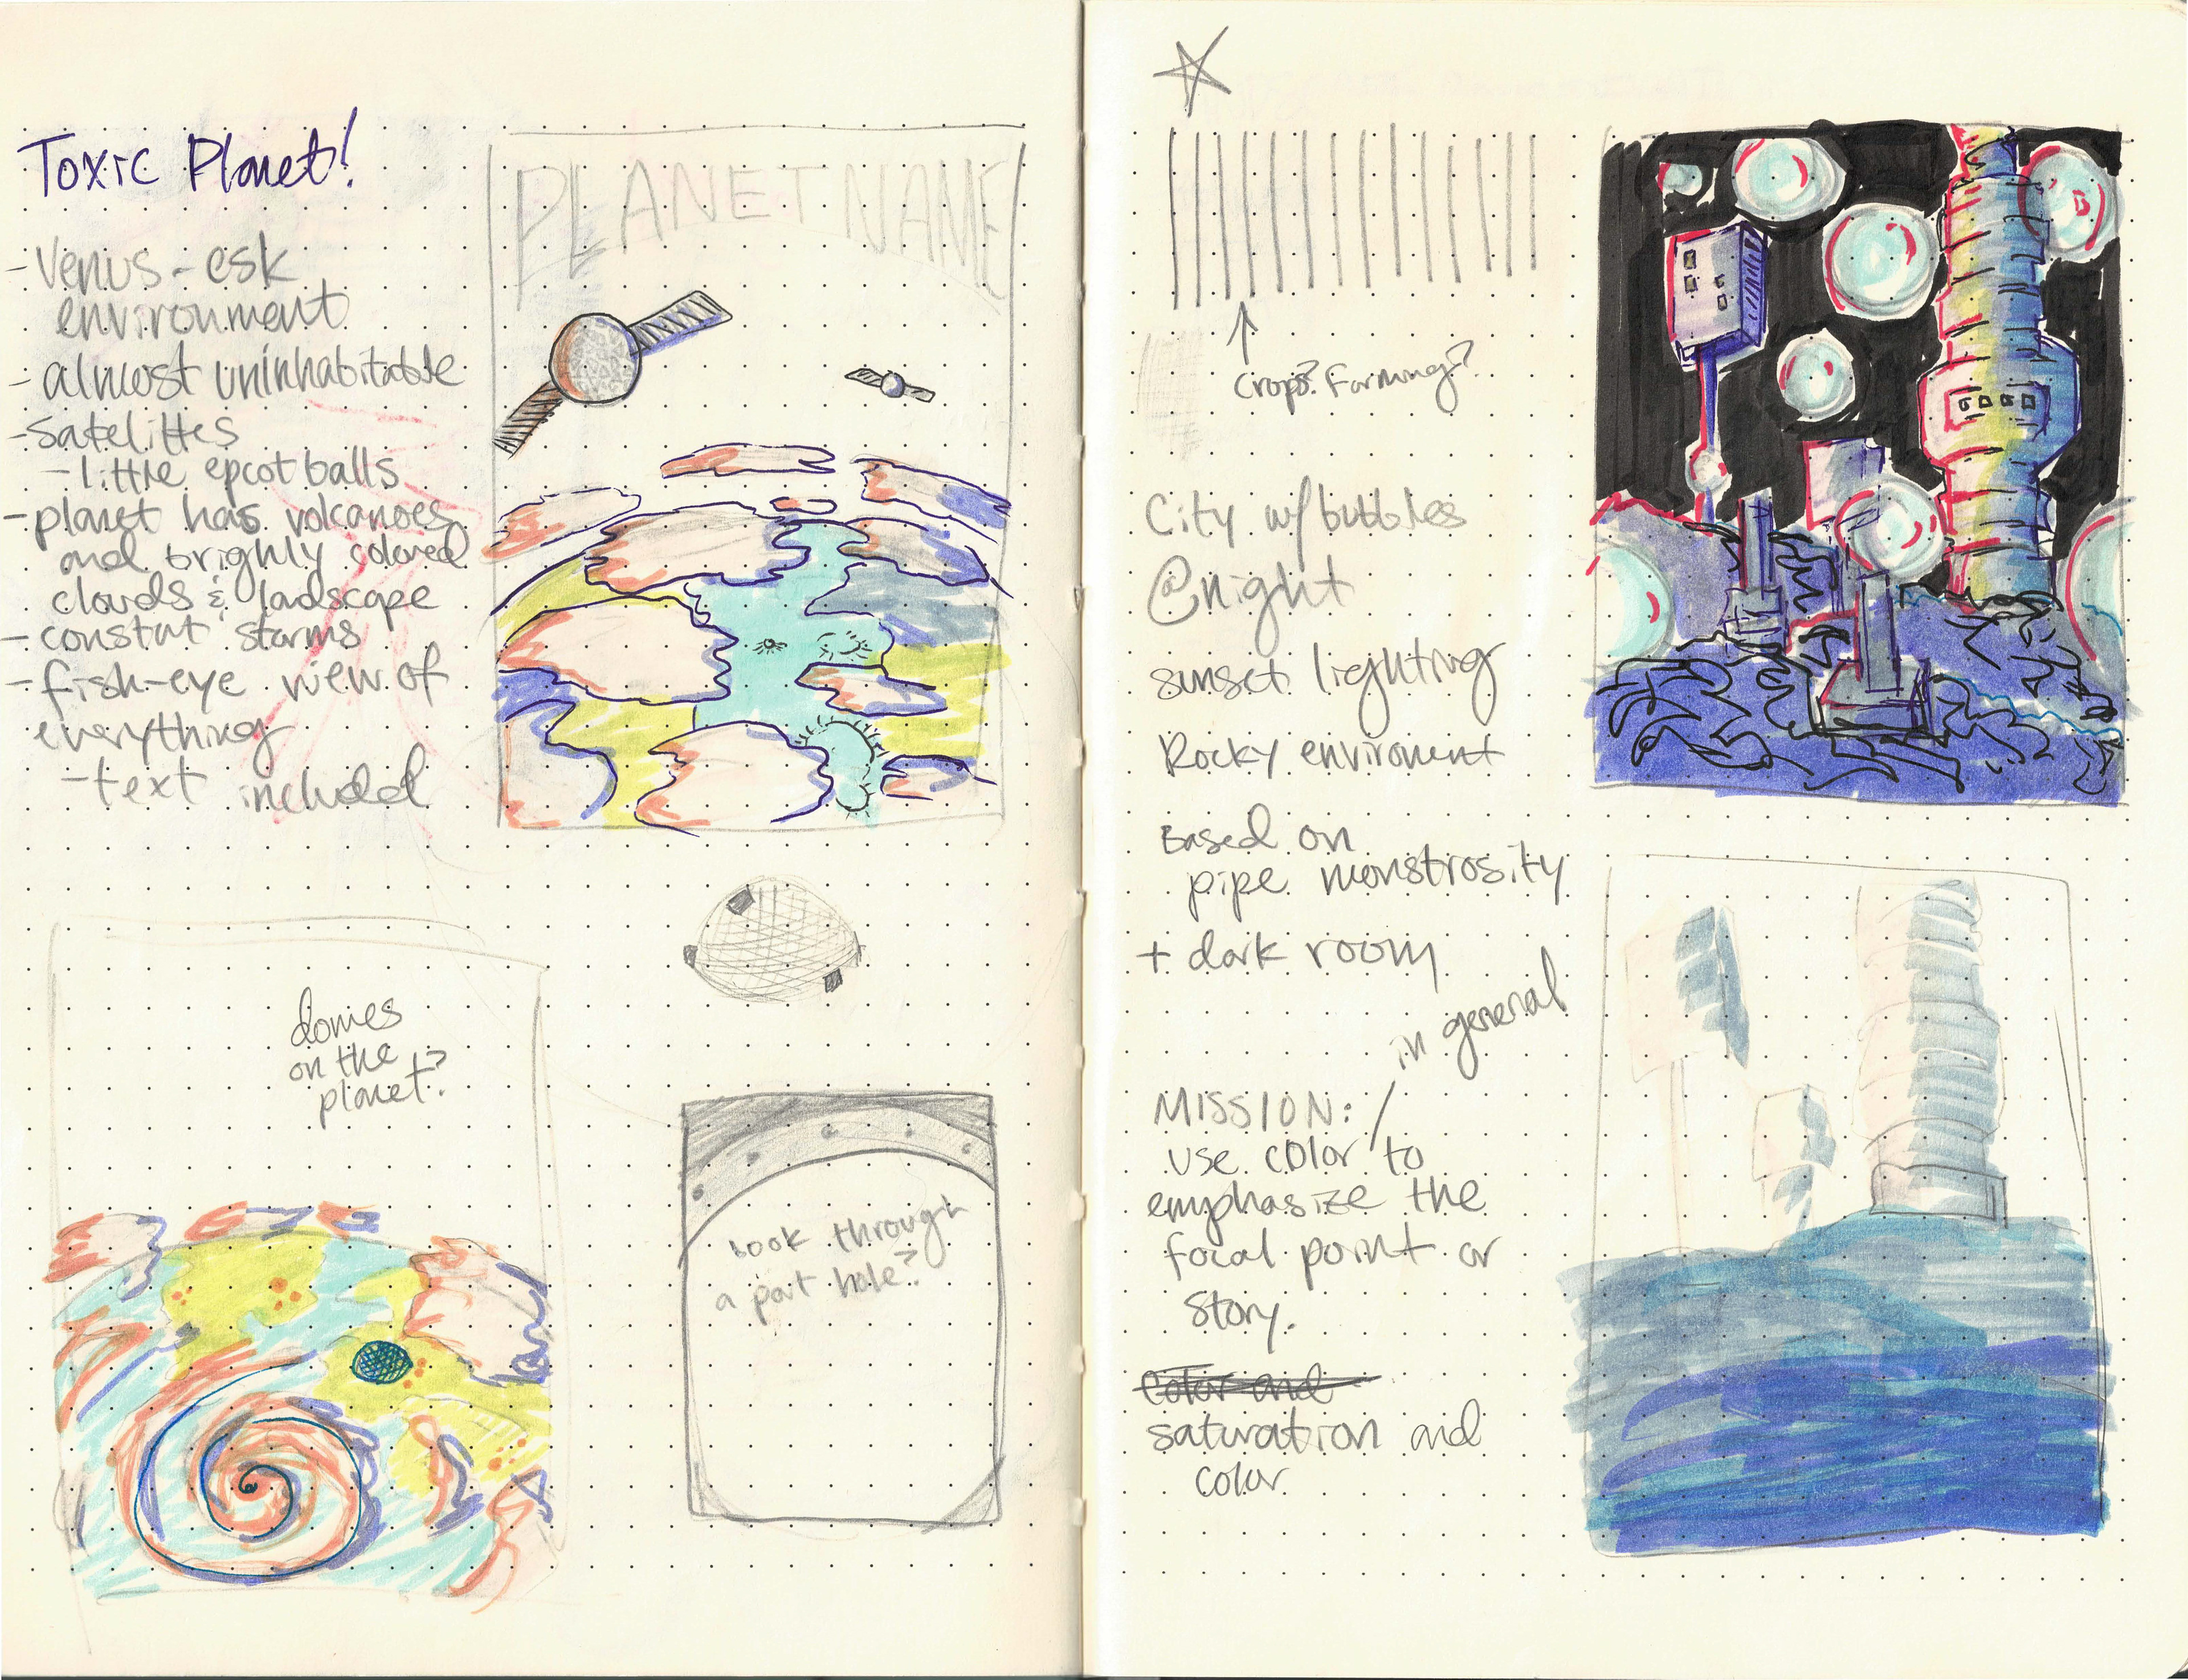 Toxic Planet!
- Venus-esk
environment
- almost uninhabitable
- satelittes
- little epcot balls
- planet has volcanoes
and brighly colored
clouds & ladscape
- constat storms
- fish-eye view of
everything
- text included
PLANET NAME
domes
on the
planet?
look through
a port hole?
crops? Farming?
City w/ bubbles
@night
sunset lighting
Rocky enviroment
Based on
pipe monstrosity
+ dark room
in general
MISSION:
use color to
emphasize the
focal point or
story.
Color and
saturation and
color